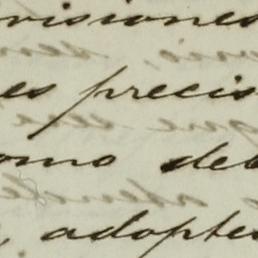 visiones
es precis
omo deb
, adopte